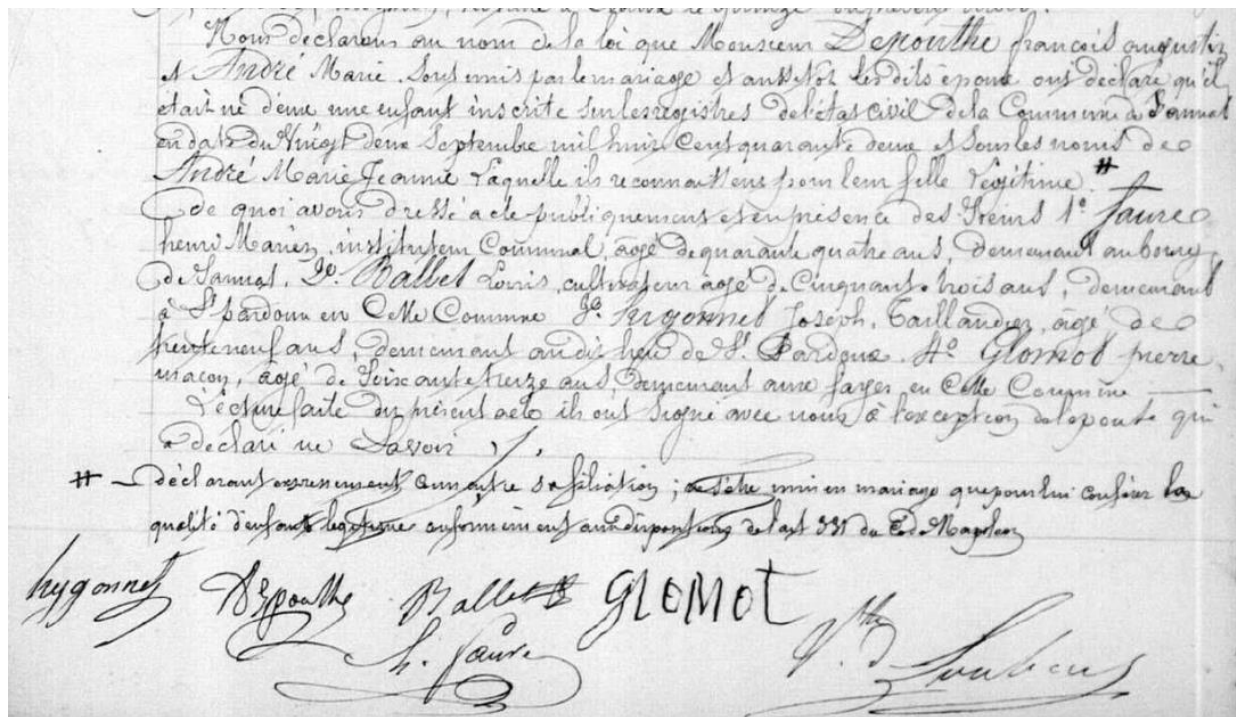 Nous déclarons au nom de la loi que Monsieur Depouthe françois augustin
et André Marie. Sont unis par le mariage et aussitot les dits époux ont déclaré qu'il
était né d'eux une enfant inscrite sur les registres de l'état civil de la Commune de Sannat
en date du Vingt deux Septembre mil huit Cent quarante deux et sous les noms de
André Marie Jeanne laquelle ils reconnaissent pour leur fille légitime. #
de quoi avons dressé acte publiquement et en présence des Sieurs 1º faure
henri Marien, instituteur Communal, âgé de quarante quatre ans, demeurant au bourg
de Sannat, 2º. Ballet Louis, cultivateur agé de Cinquante trois ans, demeurant
à St pardoux en Cette Commune 3º. hygonnet Joseph, Taillandier, âgé de
trente neuf ans, demeurant au dit lieu de St. Pardoux. 4º Glomot pierre
maçon, âgé de Soixante treize ans, demeurant aux fayes, en Cette Commune
Lecture faite du présent acte ils ont signé avec nous à l'exception de l'épouse qui
a déclaré ne Savoir
# déclarant connaitre sa filiation ; unir en mariage que pour lui conférer la
qualité d'enfant légitime conformément aux dispositions de l'art 331 du C. de Napoléon
hygonnet Depouthe Ballet GLOMOT
h. faure